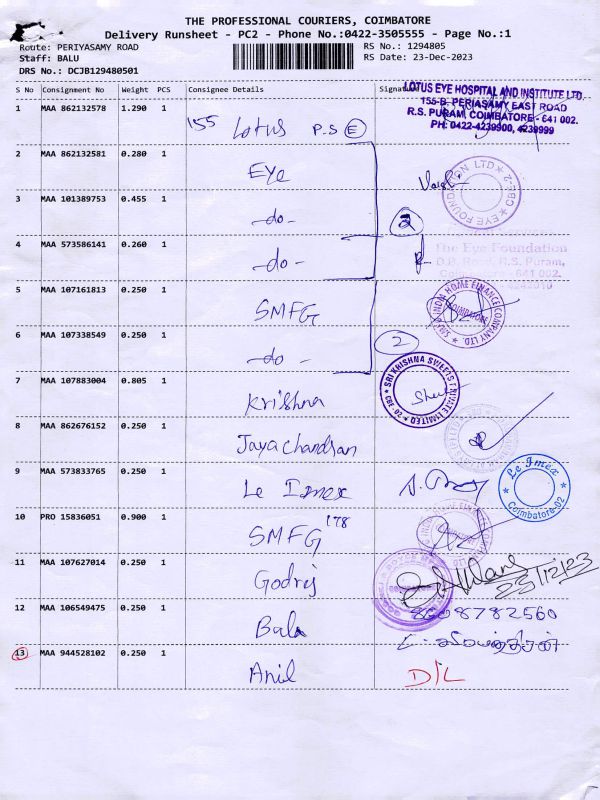 THE PROFESSIONAL COURIERS, COIMBATORE
Delivery Runsheet - PC2 - Phone No.:0422-3505555 - Page No.:1
Route: PERIYASAMY ROAD RS No.: 1294805
Staff: BALU RS Date: 23-Dec-2023
DRS No.: DCJB129480501
S No Consignment No Weight PCS Consignee Details Signature
LOTUS EYE HOSPITAL AND INSTITUTE LTD.
155-B, PERIASAMY EAST ROAD
R.S. PURAM, COIMBATORE - 641 002.
PH: 0422-4239900, 4239999
1 MAA 862132578 1.290 1 155 Lotus P.S E
2 MAA 862132581 0.280 1 Eye
EYE FOUNDATION LTD CBE-2
3 MAA 101389753 0.455 1 -do- 2
4 MAA 573586141 0.260 1 -do-
The Eye Foundation
D.B. Road, R.S. Puram,
Coimbatore - 641 002.
5 MAA 107161813 0.250 1 SMFG
SMFG INDIA HOME FINANCE COMPANY LTD. COIMBATORE
6 MAA 107338549 0.250 1 -do- 2
7 MAA 107883004 0.805 1 Krishna
SRI KRISHNA SWEETS PRIVATE LIMITED CBE-02
8 MAA 862676152 0.250 1 Jayachandran
9 MAA 573833765 0.250 1 Le Imex
Le Imex Coimbatore-02
10 PRO 15836051 0.900 1 SMFG 178
11 MAA 107627014 0.250 1 Godrej
23/12/23
12 MAA 106549475 0.250 1 Bala 8608782560
13 MAA 944528102 0.250 1 Anil D/L